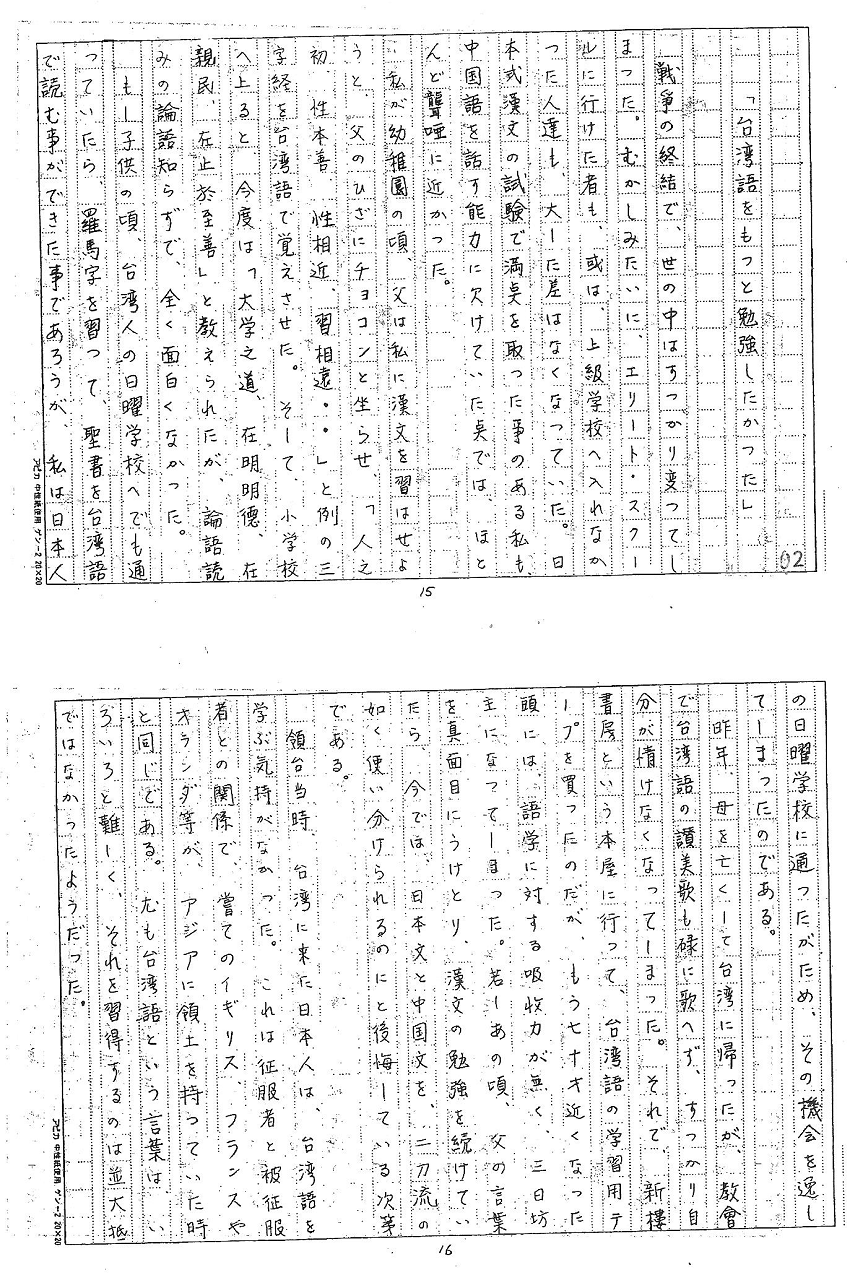 02
「台湾語をもっと勉強したかった」
戦争の終結で、世の中はすっかり変ってし
まった。むかしみたいに、エリート・スクー
ルに行けた者も、或は、上級学校へ入れなか
った人達も、大した差はなくなっていた。日
本式漢文の試験で満点を取った事のある私も、
中国語を話す能力に欠けていた点では、ほと
んど聾唖に近かった。
私が幼稚園の頃、父は私に漢文を習はせよ
うと、父のひざにチョコンと坐らせ、「人之
初、性本善、性相近、習相遠・・」と例の三
字経を台湾語で覚えさせた。そして、小学校
へ上ると、今度は「大学之道、在明明徳、在
親民、在止於至善」と教えられたが、論語読
みの論語知らずで、全く面白くなかった。
もし子供の頃、台湾人の日曜学校へでも通
っていたら、羅馬字を習って、聖書を台湾語
で読む事ができた事であろうが、私は日本人
アピカ 中性紙使用 ゲン-2 20×20
15
の日曜学校に通ったがため、その機会を逸し
てしまったのである。
昨年、母を亡くして台湾に帰ったが、教會
で台湾語の讃美歌も碌に歌へず、すっかり自
分が情けなくなってしまった。それで、新樓
書房という本屋に行って、台湾語の学習用テ
ープを買ったのだが、もう七十才近くなった
頭には、語学に対する吸收力が無く、三日坊
主になってしまった。若しあの頃、父の言葉
を真面目にうけとり、漢文の勉強を続けてい
たら、今では、日本文と中国文を、二刀流の
如く使い分けられるのにと後悔している次第
である。
領台当時、台湾に来た日本人は、台湾語を
学ぶ気持がなかった。これは征服者と被征服
者との関係で、嘗てのイギリス、フランスや
オランダ等が、アジアに領土を持っていた時
と同じである。尤も台湾語という言葉は、い
ろいろと難しく、それを習得するのは並大抵
ではなかったようだった。
アピカ 中性紙使用 ゲン-2 20×20
16